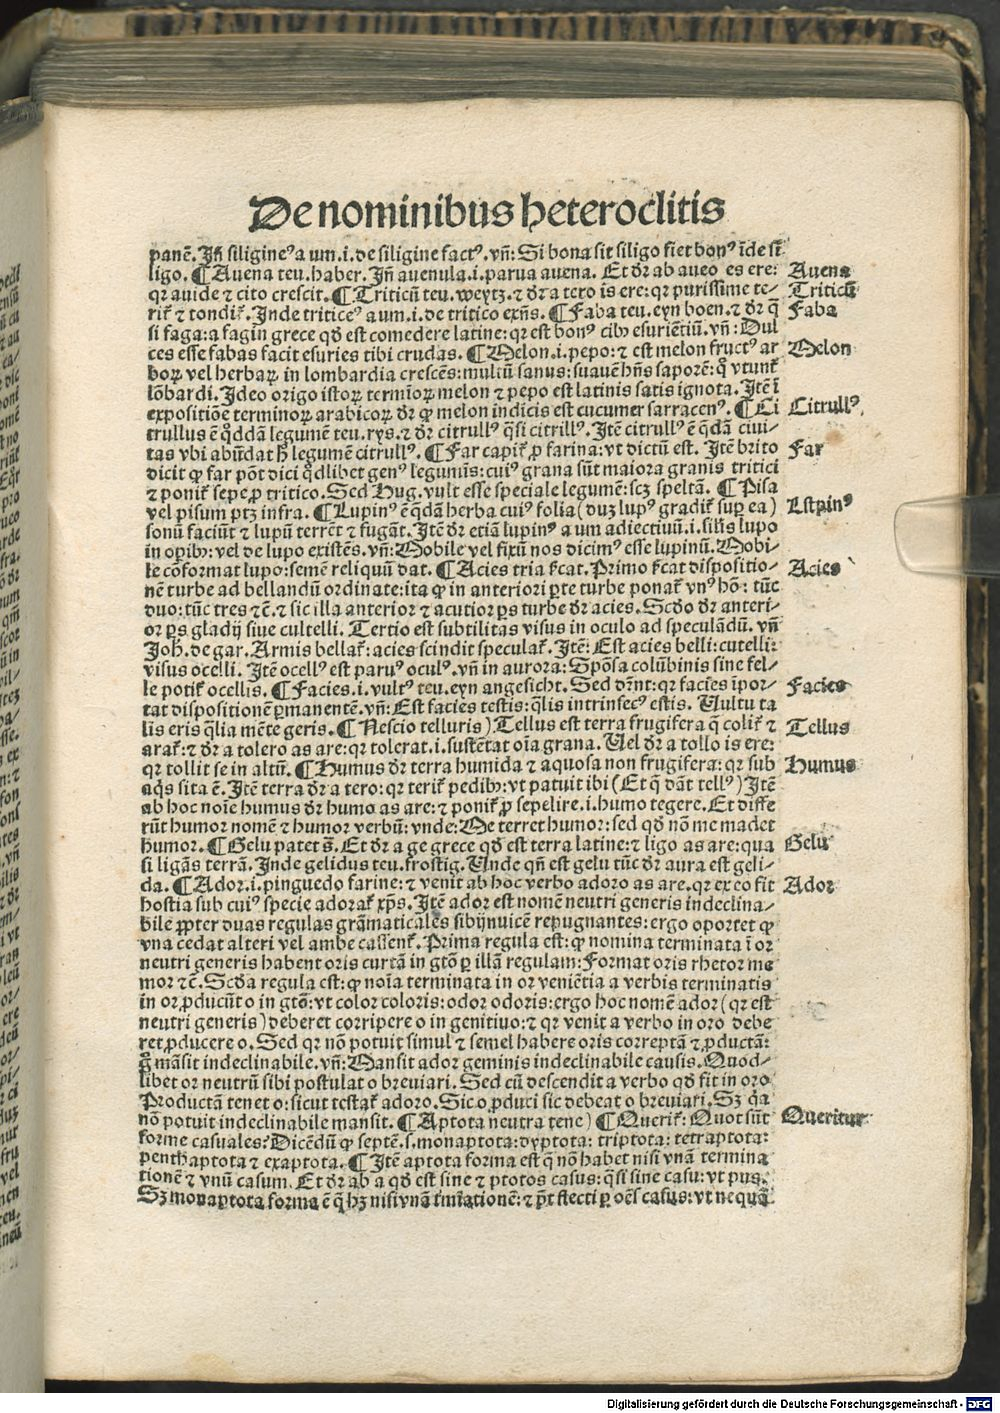 De nominibus heteroclitis
panē. Iñ siligineꝰ a um .i. de siligine factꝰ. vñ: Si bona sit siligo fiet bonꝰ īde si
ligo. ¶ Auena teu. haber. Iñ auenula .i. parua auena. Et dr̄ ab aueo es ere:
Auena
qr auide ⁊ cito crescit. ¶ Triticū teu. weytz. ⁊ dr̄ a tero is ere: qr purissime te⸗
Triticū
rit᷑ ⁊ tondit᷑. Inde triticeꝰ a um .i. de tritico exñs. ¶ Faba teu. eyn boen. ⁊ dr̄ q̄
Faba
si faga: a fagin grece qd̄ est comedere latine: qr est bonꝰ cibꝰ esuriētiū. vñ: Dul
ces esse fabas facit esuries tibi crudas. ¶ Melon .i. pepo: ⁊ est melon fructꝰ ar
Melon
boꝝ vel herbaꝝ in lombardia crescēs: multū sanus: suauē hñs saporē: q̊ vtunt᷑
lōbardi. Ideo origo istoꝝ termīoꝝ melon ⁊ pepo est latinis satis ignota. Itē ī
expositiōe terminoꝝ arabicoꝝ dr̄ ꝙ melon indicis est cucumer sarracenꝰ. ¶ Ci
Citrullꝰ
trullus ē q̊ddā legumē teu. rys. ⁊ dr̄ citrullꝰ q̄si citrillꝰ. Itē citrullꝰ ē q̄dā ciui⸗
tas vbi abūdat h̄ legumē citrullꝰ. ¶ Far capit᷑ ꝓ farina: vt dictū est. Itē brito
Far
dicit ꝙ far pōt dici q̊dlibet genꝰ legumīs: cuiꝰ grana sūt maiora granis tritici
⁊ ponit᷑ sepe ꝓ tritico. Sed Hug. vult esse speciale legumē: scꝫ speltā. ¶ Pisa
vel pisum ptꝫ infra. ¶ Lupinꝰ ē q̄dā herba cuiꝰ folia (duꝫ lupꝰ gradit᷑ suꝑ ea)
Lupinꝰ
sonū faciūt ⁊ lupū terrēt ⁊ fugāt. Itē dr̄ etiā lupinꝰ a um adiectiuū .i. silīs lupo
in opibꝰ: vel de lupo existēs. vñ: Mobile vel fixū nos dicimꝰ esse lupinū. Mobi⸗
le cōformat lupo: semē reliquū dat. ¶ Acies tria st᷑cat. Primo st᷑cat dispositio⸗
Acies
nē turbe ad bellandū ordinate: ita ꝙ in anteriori ꝑte turbe ponat᷑ vnꝰ hō: tūc
duo: tūc tres ⁊c̄. ⁊ sic illa anterior ⁊ acutior ꝑs turbe dr̄ acies. Scd̄o dr̄ anteri⸗
or ꝑs gladij siue cultelli. Tertio est subtilitas visus in oculo ad speculādū. vñ
Joh. de gar. Armis bellat᷑: acies scindit speculat᷑. Itē: Est acies belli: cutelli:
visus ocelli. Itē ocellꝰ est paruꝰ oculꝰ. vñ in aurora: Spōsa colūbinis sine fel⸗
le potit᷑ ocellis. ¶ Facies .i. vultꝰ teu. eyn angesicht. Sed dr̄nt: qr facies īpor⸗
Facies
tat dispositionē ꝑmanentē. vñ: Est facies testis: q̄lis intrinsecꝰ estis. Vultu ta
lis eris q̄lia mēte geris. ¶ Nescio telluris) Tellus est terra frugifera q̄ colit᷑ ⁊
Tellus
arat᷑: ⁊ dr̄ a tolero as are: qr tolerat .i. sustētat oīa grana. Vel dr̄ a tollo is ere:
qr tollit se in altū. ¶ Humus dr̄ terra humida ⁊ aquosa non frugifera: qr sub
Humus
aq̄s sita ē. Itē terra dr̄ a tero: qr terit᷑ pedibꝰ: vt patuit ibi (Et q̄ dāt tellꝰ) Itē
ab hoc noīe humus dr̄ humo as are: ⁊ ponit᷑ ꝓ sepelire .i. humo tegere. Et diffe
rūt humor nomē ⁊ humor verbū: vnde: Me terret humor: sed qd̄ nō me madet
humor. ¶ Gelu patet s̄. Et dr̄ a ge grece qd̄ est terra latine: ⁊ ligo as are: qua
Gelu
si ligās terrā. Inde gelidus teu. frostig. Unde qñ est gelu tūc dr̄ aura est geli⸗
da. ¶ Ador .i. pinguedo farine: ⁊ venit ab hoc verbo adoro as are. qr ex eo fit
Ador
hostia sub cuiꝰ specie adorat᷑ xp̄s. Itē ador est nomē neutri generis indeclina⸗
bile ꝓpter duas regulas grāmaticales sibijnuicē repugnantes: ergo oportet ꝙ
vna cedat alteri vel ambe cassent᷑. Prima regula est: ꝙ nomina terminata ī or
neutri generis habent oris curtā in gtō ꝑ illā regulam: Format oris rhetor me
mor ⁊c̄. Scd̄a regula est: ꝙ noīa terminata in or veniētia a verbis terminatis
in or ꝓducūt o in gtō: vt color coloris: odor odoris: ergo hoc nomē ador (qr est
neutri generis) deberet corripere o in genitiuo: ⁊ qr venit a verbo in oro debe
ret ꝓducere o. Sed qr nō potuit simul ⁊ semel habere oris correptā ⁊ ꝓductā:
g̊ māsit indeclinabile. vñ: Mansit ador geminis indeclinabile causis. Quod⸗
libet or neutrū sibi postulat o breuiari. Sed cū descendit a verbo qd̄ fit in oro
Productā tenet o: sicut testat᷑ adoro. Sic o ꝓduci sic debeat o breuiari. Sꝫ q̄a
nō potuit indeclinabile mansit. ¶ Aptota neutra tene) ¶ Querit᷑: Quot sūt
Queritur
forme casuales: Dicēdū ꝙ septē. s. monaptota: dyptota: triptota: tetraptota:
penthaptota ⁊ exaptota. ¶ Itē aptota forma est q̄ nō habet nisi vnā termina
tionē ⁊ vnū casum. Et dr̄ ab a qd̄ est sine ⁊ ptotos casus: q̄si sine casu: vt pus.
Sꝫ monaptota forma ē q̄ hꝫ nisi vnā t̄mīatiōnē: ⁊ pōt flecti ꝑ oēs casus: vt nequā
Digitalisierung gefördert durch die Deutsche Forschungsgemeinschaft - DFG